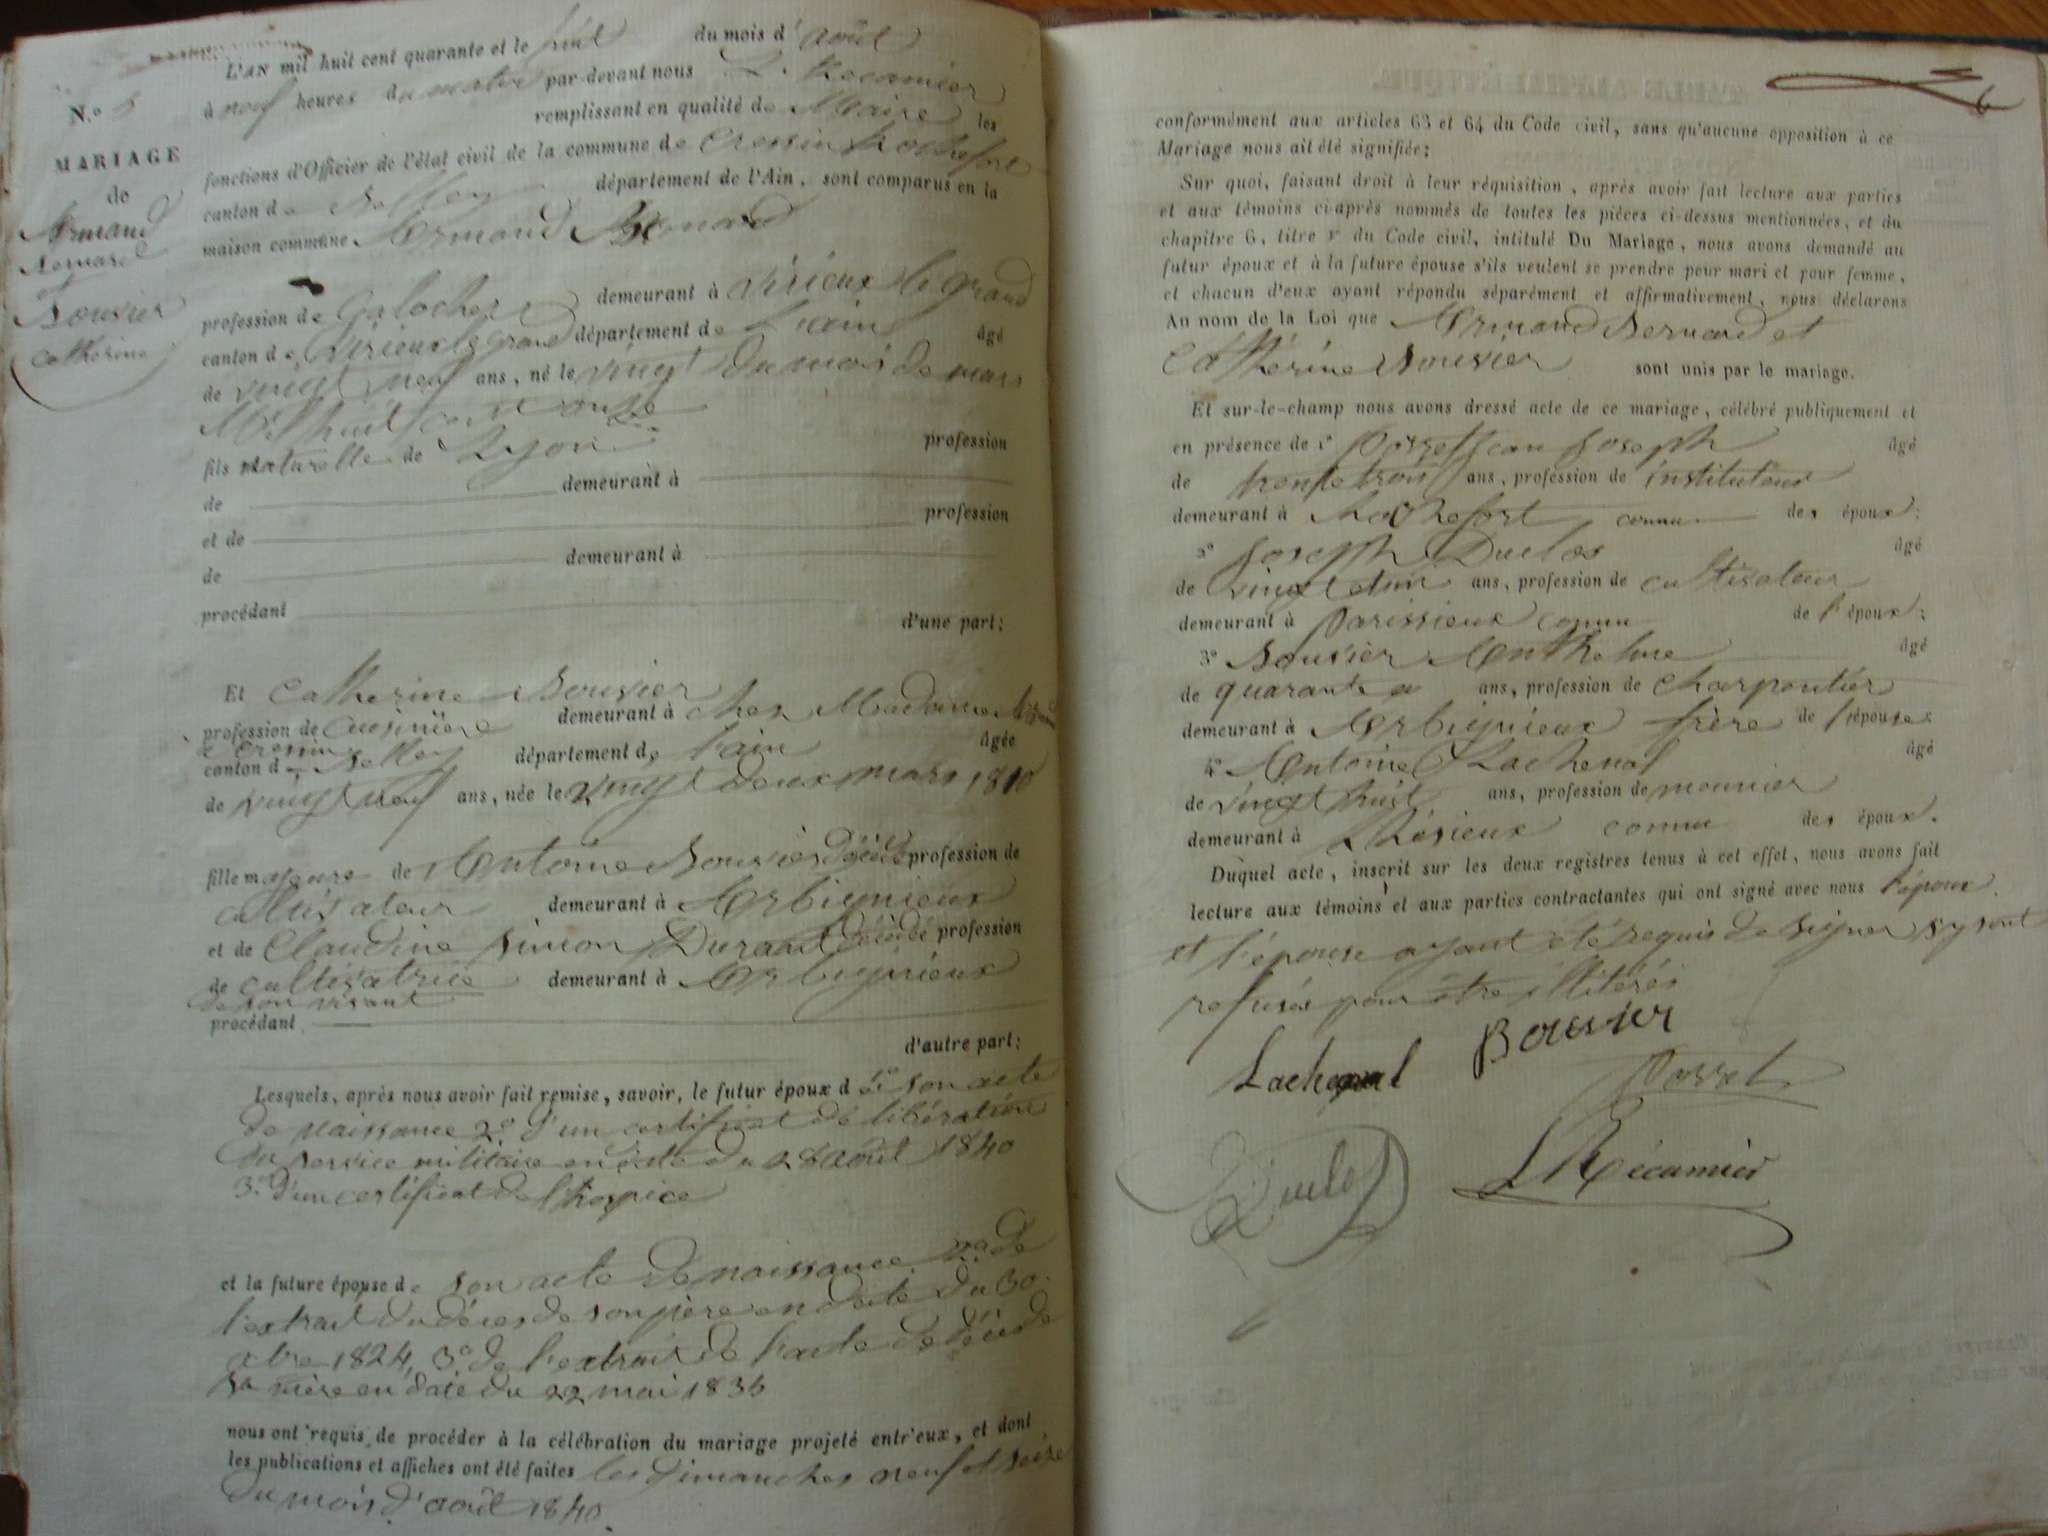 L'AN mil huit cent quarante et le du mois d'août
à neuf heures du matin par-devant nous L. Récamier
remplissant en qualité de Maire les
fonctions d'Officier de l'état civil de la commune de Cressin Rochefort
canton de Belley département de l'Ain, sont comparus en la
maison commune Armand Bernard
N.º 5
MARIAGE
de
Armand
Bernard
et
Bouvier
Catherine
profession de Galocher demeurant à Virieux le grand
canton de Virieux le grand département de l'ain âgé
de vingt neuf ans, né le vingt du mois de mars
Mil huit cent onze
fils naturelle de Lyon profession
de demeurant à
et de profession
de demeurant à
procédant
d'une part;
Et Catherine Bouvier
profession de Cuisinière demeurant à chez Madame
à Cressin
canton de Belley département de l'ain âgée
de vingt neuf ans, née le vingt deux mars 1810
fille majeure de Antoine Bouvier décédé profession de
cultivateur demeurant à Arbignieux
et de Claudine Simon Durant décédé profession
de cultivatrice demeurant à Arbignieux
de son vivant
procédant
d'autre part;
Lesquels, après nous avoir fait remise, savoir, le futur époux d 1º son acte
de naissance 2º d'un certificat de libération
du service militaire en date du 28 août 1840
3º d'un certificat de l'hospice
et la future épouse de son acte de naissance 2º de
l'extrait du décès de son père en date du 30
xbre 1824, 3º de l'extrait de l'acte de décès de
sa mère en date du 22 mai 1835
nous ont requis de procéder à la célébration du mariage projeté entr'eux, et dont
les publications et affiches ont été faites les dimanches neuf et seize
du mois d'août 1840.
6
conformément aux articles 63 et 64 du Code civil, sans qu'aucune opposition à ce
Mariage nous ait été signifiée;
Sur quoi, faisant droit à leur réquisition, après avoir fait lecture aux parties
et aux témoins ci-après nommés de toutes les pièces ci-dessus mentionnées, et du
chapitre 6, titre v du Code civil, intitulé Du Mariage, nous avons demandé au
futur époux et à la future épouse s'ils veulent se prendre pour mari et pour femme,
et chacun d'eux ayant répondu séparément et affirmativement, nous déclarons
Au nom de la Loi que Armand Bernard et
Cathérine Bouvier sont unis par le mariage.
Et sur-le-champ nous avons dressé acte de ce mariage, célébré publiquement et
en présence de 1º Jean Joseph âgé
de trente trois ans, profession de instituteur
demeurant à Rochefort connu des époux;
2º Joseph Duclos âgé
de vingt et un ans, profession de cultivateur
demeurant à Parissieux connu de l'époux;
3º Bouvier Anthelme âgé
de quarante ans, profession de charpentier
demeurant à Arbignieux frère de l'épouse;
4º Antoine Lachenal âgé
de vingt huit ans, profession de meunier
demeurant à connu des époux.
Duquel acte, inscrit sur les deux registres tenus à cet effet, nous avons fait
lecture aux témoins et aux parties contractantes qui ont signé avec nous l'époux
et l'épouse ayant été requis de signer s'y sont
refusés pour être illitérés
Lachenal Bouvier
Duclos L Récamier